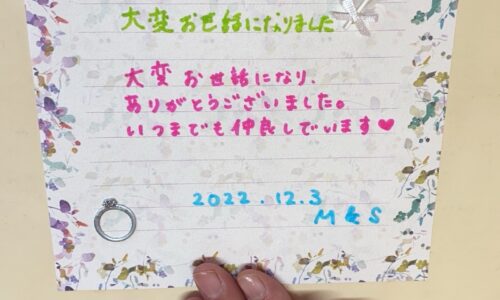 大変お世話になりました
大変お世話になり、
ありがとうございました。
いつまでも仲良しでいます♥
2022.12.3
M & S